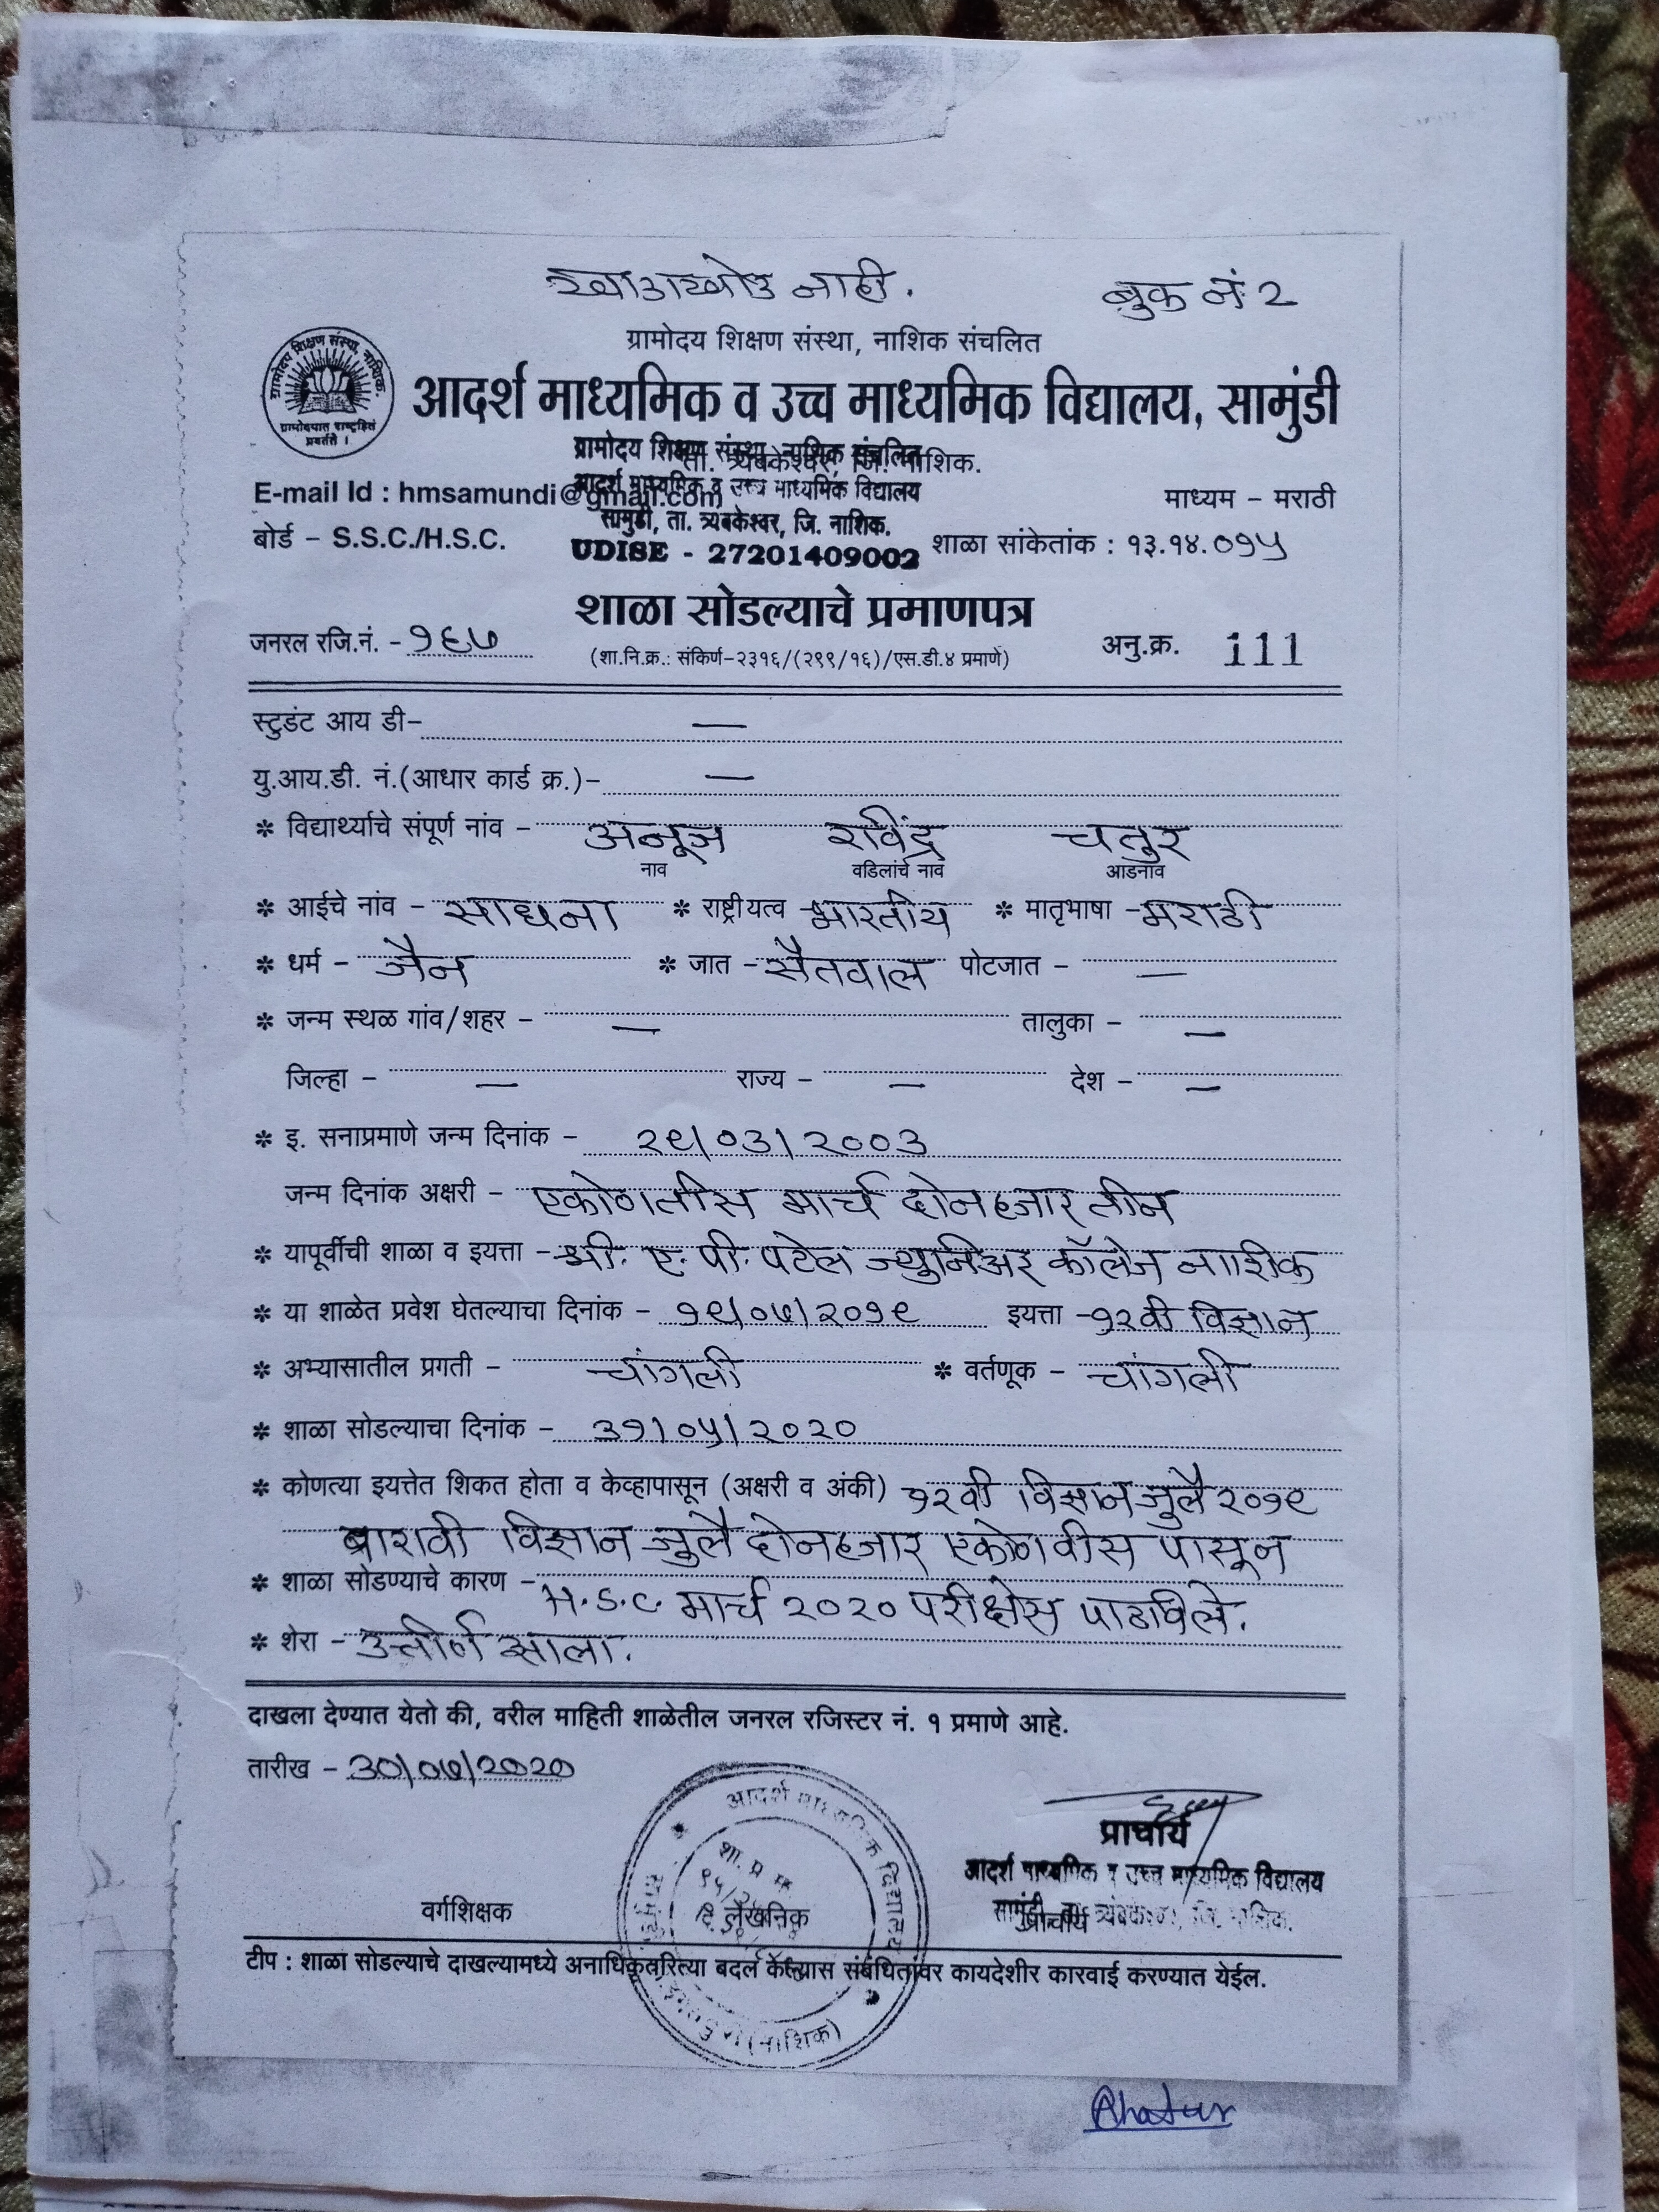 खाडाखोड नाही.
बुक नं. २
ग्रामोदय शिक्षण संस्था, नाशिक संचलित
ग्रामोदय शिक्षण संस्था, नाशिक.
ग्रामोदयात राष्ट्रहित
प्रवर्तते ।
आदर्श माध्यमिक व उच्च माध्यमिक विद्यालय, सामुंडी
ता. त्र्यंबकेश्वर, जि. नाशिक.
ग्रामोदय शिक्षण संस्था, नाशिक संचलित
आदर्श माध्यमिक व उच्च माध्यमिक विद्यालय
सामुंडी, ता. त्र्यंबकेश्वर, जि. नाशिक.
UDISE - 27201409002
E-mail Id : hmsamundi@gmail.com
माध्यम – मराठी
बोर्ड – S.S.C./H.S.C.
शाळा सांकेतांक : १३.१४.०१५
शाळा सोडल्याचे प्रमाणपत्र
जनरल रजि.नं. - १६७
(शा.नि.क्र.: संकिर्ण-२३१६/(२९९/१६)/एस.डी.४ प्रमाणे)
अनु.क्र. 111
स्टुडंट आय डी- —
यु.आय.डी. नं.(आधार कार्ड क्र.)- —
* विद्यार्थ्याचे संपूर्ण नांव - अनूज रविंद्र चतुर
नाव वडिलांचे नाव आडनाव
* आईचे नांव - साधना * राष्ट्रीयत्व - भारतीय * मातृभाषा - मराठी
* धर्म - जैन * जात - सैतवाल पोटजात - —
* जन्म स्थळ गांव/शहर - — तालुका - —
जिल्हा - — राज्य - — देश - —
* इ. सनाप्रमाणे जन्म दिनांक - २९/०३/२००३
जन्म दिनांक अक्षरी - एकोणतीस मार्च दोनहजार तीन
* यापूर्वीची शाळा व इयत्ता - श्री. ए. पी. पटेल ज्युनिअर कॉलेज नाशिक
* या शाळेत प्रवेश घेतल्याचा दिनांक - १९/०७/२०१९ इयत्ता - १२वी विज्ञान
* अभ्यासातील प्रगती - चांगली * वर्तणूक - चांगली
* शाळा सोडल्याचा दिनांक - ३१/०५/२०२०
* कोणत्या इयत्तेत शिकत होता व केव्हापासून (अक्षरी व अंकी) १२वी विज्ञान जुलै २०१९
बारावी विज्ञान जुलै दोनहजार एकोणवीस पासून
* शाळा सोडण्याचे कारण - H.S.C. मार्च २०२० परीक्षेस पाठविले.
* शेरा - उत्तीर्ण झाला.
दाखला देण्यात येतो की, वरील माहिती शाळेतील जनरल रजिस्टर नं. १ प्रमाणे आहे.
तारीख - ३०/०७/२०२०
आदर्श माध्यमिक विद्यालय
शा. प्र.
(नाशिक)
प्राचार्य
आदर्श माध्यमिक व उच्च माध्यमिक विद्यालय
सामुंडी, ता. त्र्यंबकेश्वर, जि. नाशिक.
वर्गशिक्षक लेखनिक प्राचार्य
टीप : शाळा सोडल्याचे दाखल्यामध्ये अनाधिकृतरित्या बदल केल्यास संबंधितांवर कायदेशीर कारवाई करण्यात येईल.